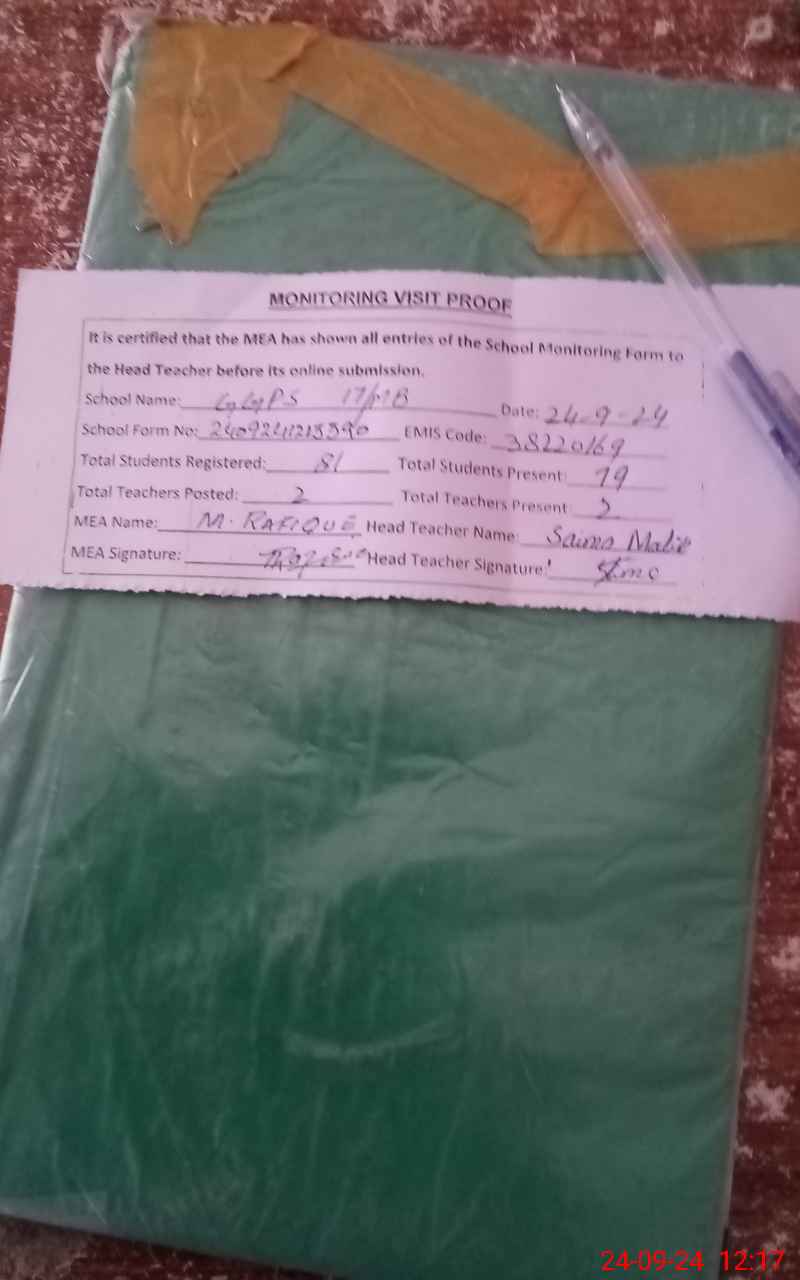 MONITORING VISIT PROOF
It is certified that the MEA has shown all entries of the School Monitoring Form to
the Head Teacher before its online submission.
School Name: GGPS 17/MB Date: 24-9-24
School Form No: EMIS Code: 38220169
Total Students Registered: 81 Total Students Present: 79
Total Teachers Posted: 2 Total Teachers Present 2
MEA Name: M. RAFIQUE Head Teacher Name: Saima
MEA Signature: Head Teacher Signature:
24-09-24 12:17